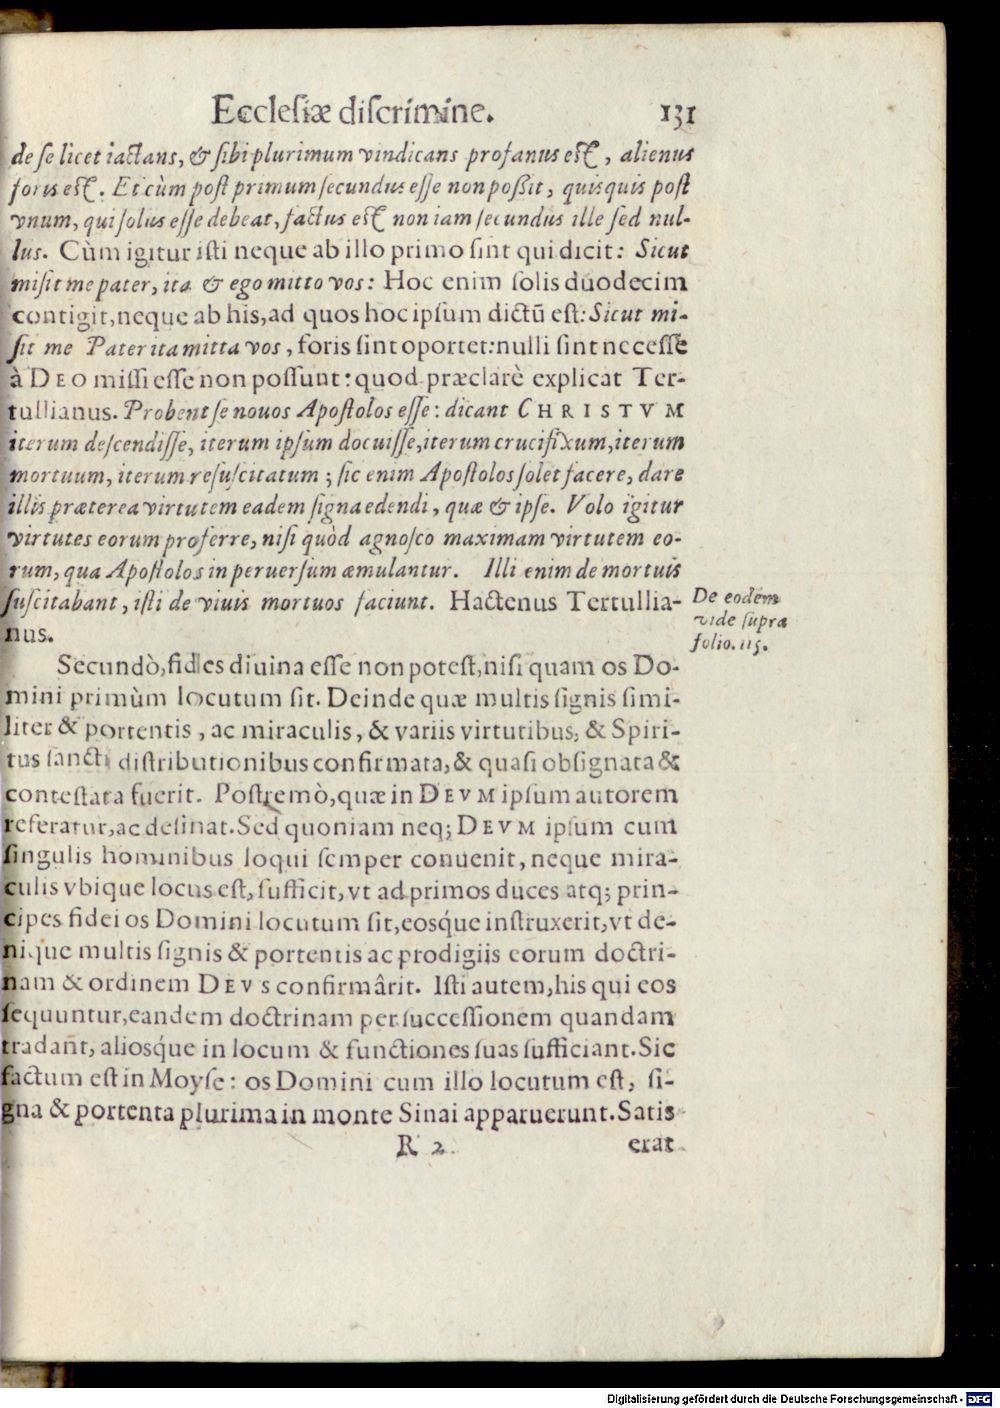 Ecclesiæ discrimine. 131
de se licet iactans, & sibi plurimum vindicans profanus est, alienus
foris est. Et cùm post primum secundus esse non poßit, quisquis post
vnum, qui solus esse debeat, factus est non iam secundus ille sed nul-
lus. Cùm igitur isti neque ab illo primo sint qui dicit: Sicut
misit me pater, ita & ego mitto vos: Hoc enim solis duodecim
contigit, neque ab his, ad quos hoc ipsum dictũ est: Sicut mi-
sit me Pater ita mitta vos, foris sint oportet: nulli sint necesse
à DEO missi esse non possunt: quod præclarè explicat Ter-
tullianus. Probent se nouos Apostolos esse: dicant CHRISTVM
iterum descendisse, iterum ipsum docuisse, iterum crucifixum, iterum
mortuum, iterum resuscitatum; sic enim Apostolos solet facere, dare
illis præterea virtutem eadem signa edendi, quæ & ipse. Volo igitur
virtutes eorum proferre, nisi quòd agnosco maximam virtutem eo-
rum, qua Apostolos in peruersum æmulantur. Illi enim de mortuis
suscitabant, isti de viuis mortuos faciunt. Hactenus Tertullia-
nus.
De eodem
vide supra
folio. 115.
Secundò, fides diuina esse non potest, nisi quam os Do-
mini primùm locutum sit. Deinde quæ multis signis simi-
liter & portentis, ac miraculis, & variis virtutibus, & Spiri-
tus sancti distributionibus confirmata, & quasi obsignata &
contestata fuerit. Postremò, quæ in DEVM ipsum autorem
referatur, ac desinat. Sed quoniam neq; DEVM ipsum cum
singulis hominibus loqui semper conuenit, neque mira-
culis vbique locus est, sufficit, vt ad primos duces atq; prin-
cipes fidei os Domini locutum sit, eosq́ue instruxerit, vt de-
nique multis signis & portentis ac prodigiis eorum doctri-
nam & ordinem DEVS confirmârit. Isti autem, his qui eos
sequuntur, eandem doctrinam per successionem quandam
tradant, aliosq́ue in locum & functiones suas sufficiant. Sic
factum est in Moyse: os Domini cum illo locutum est, si-
gna & portenta plurima in monte Sinai apparuerunt. Satis
R 2 erat
Digitalisierung gefördert durch die Deutsche Forschungsgemeinschaft - DFG